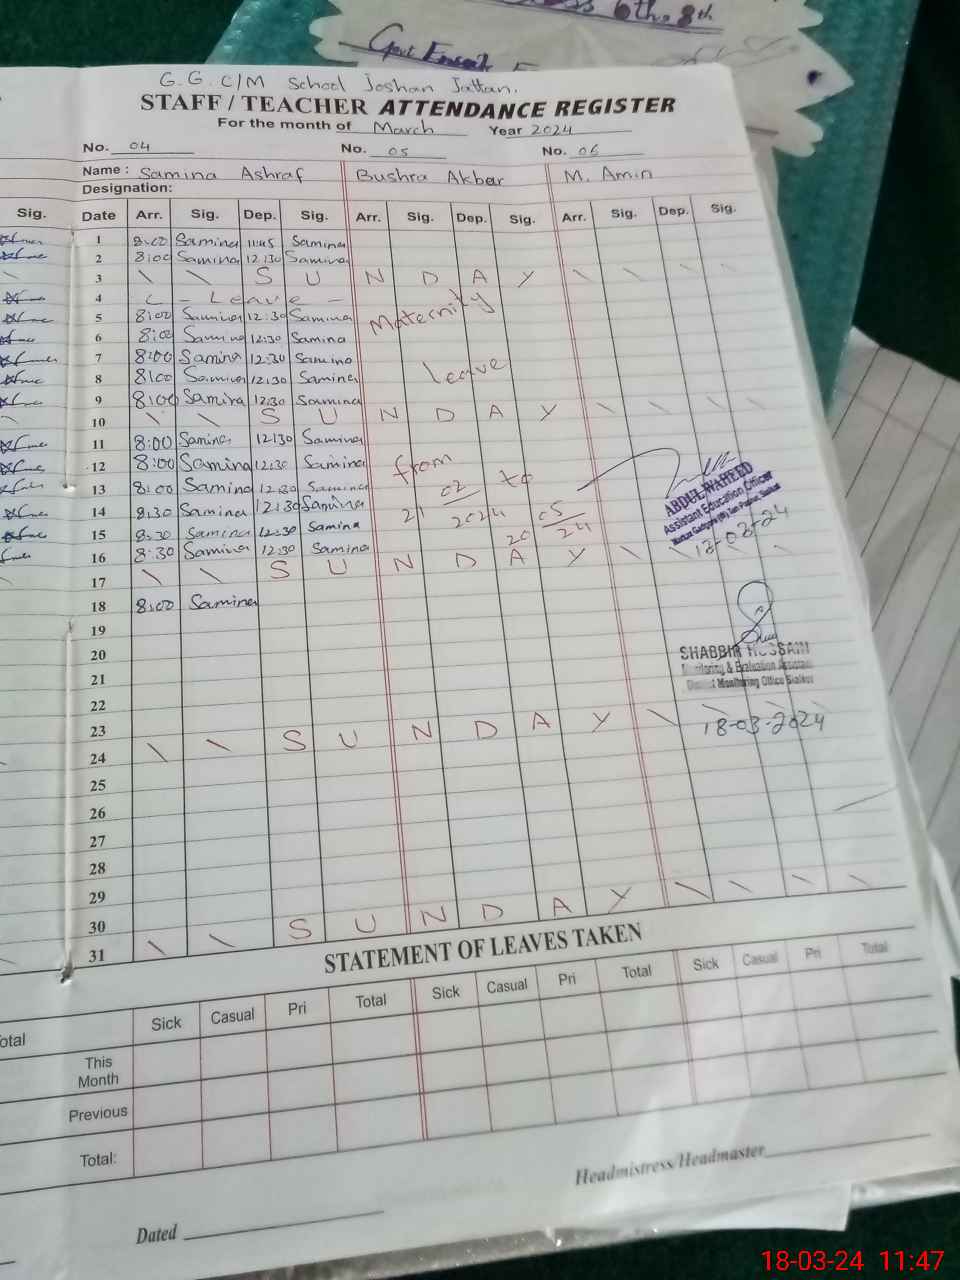 6th 8th
Govt
G.G. C/M School Joshan Jattan.
STAFF / TEACHER ATTENDANCE REGISTER
For the month of March Year 2024
No. 04 No. 05 No. 06
Name : Samina Ashraf Bushra Akbar M. Amin
Designation:
Sig. Date Arr. Sig. Dep. Sig. Arr. Sig. Dep. Sig. Arr. Sig. Dep. Sig.
1 8:00 Samina 11:45 Samina
2 8:00 Samina 12:30 Samina
3 S U N D A Y
4 C - Leave -
Maternity
5 8:00 Samina 12:30 Samina
6 8:00 Samina 12:30 Samina
7 8:00 Samina 12:30 Samina
Leave
8 8:00 Samina 12:30 Samina
9 8:00 Samina 12:30 Samina
10 S U N D A Y
11 8:00 Samina 12:30 Samina
12 8:00 Samina 12:30 Samina from
13 8:00 Samina 12:30 Samina 02 to
ABDUL WAHEED
Assistant Education Officer
14 8:30 Samina 12:30 Samina 2024 05
15 8:30 Samina 12:30 Samina 20 24
16 8:30 Samina 12:30 Samina
17 S U N D A Y
18 8:00 Samina
19
20
SHABBIR HUSSAIN
Monitoring & Evaluation Assistant
District Monitoring Office Sialkot
21
22
18-03-2024
23
24 S U N D A Y
25
26
27
28
29
30
31 S U N D A Y
STATEMENT OF LEAVES TAKEN
Sick Casual Pri Total Sick Casual Pri Total Sick Casual Pri Total
This Month
Previous
Total:
Headmistress/Headmaster
Dated
18-03-24 11:47